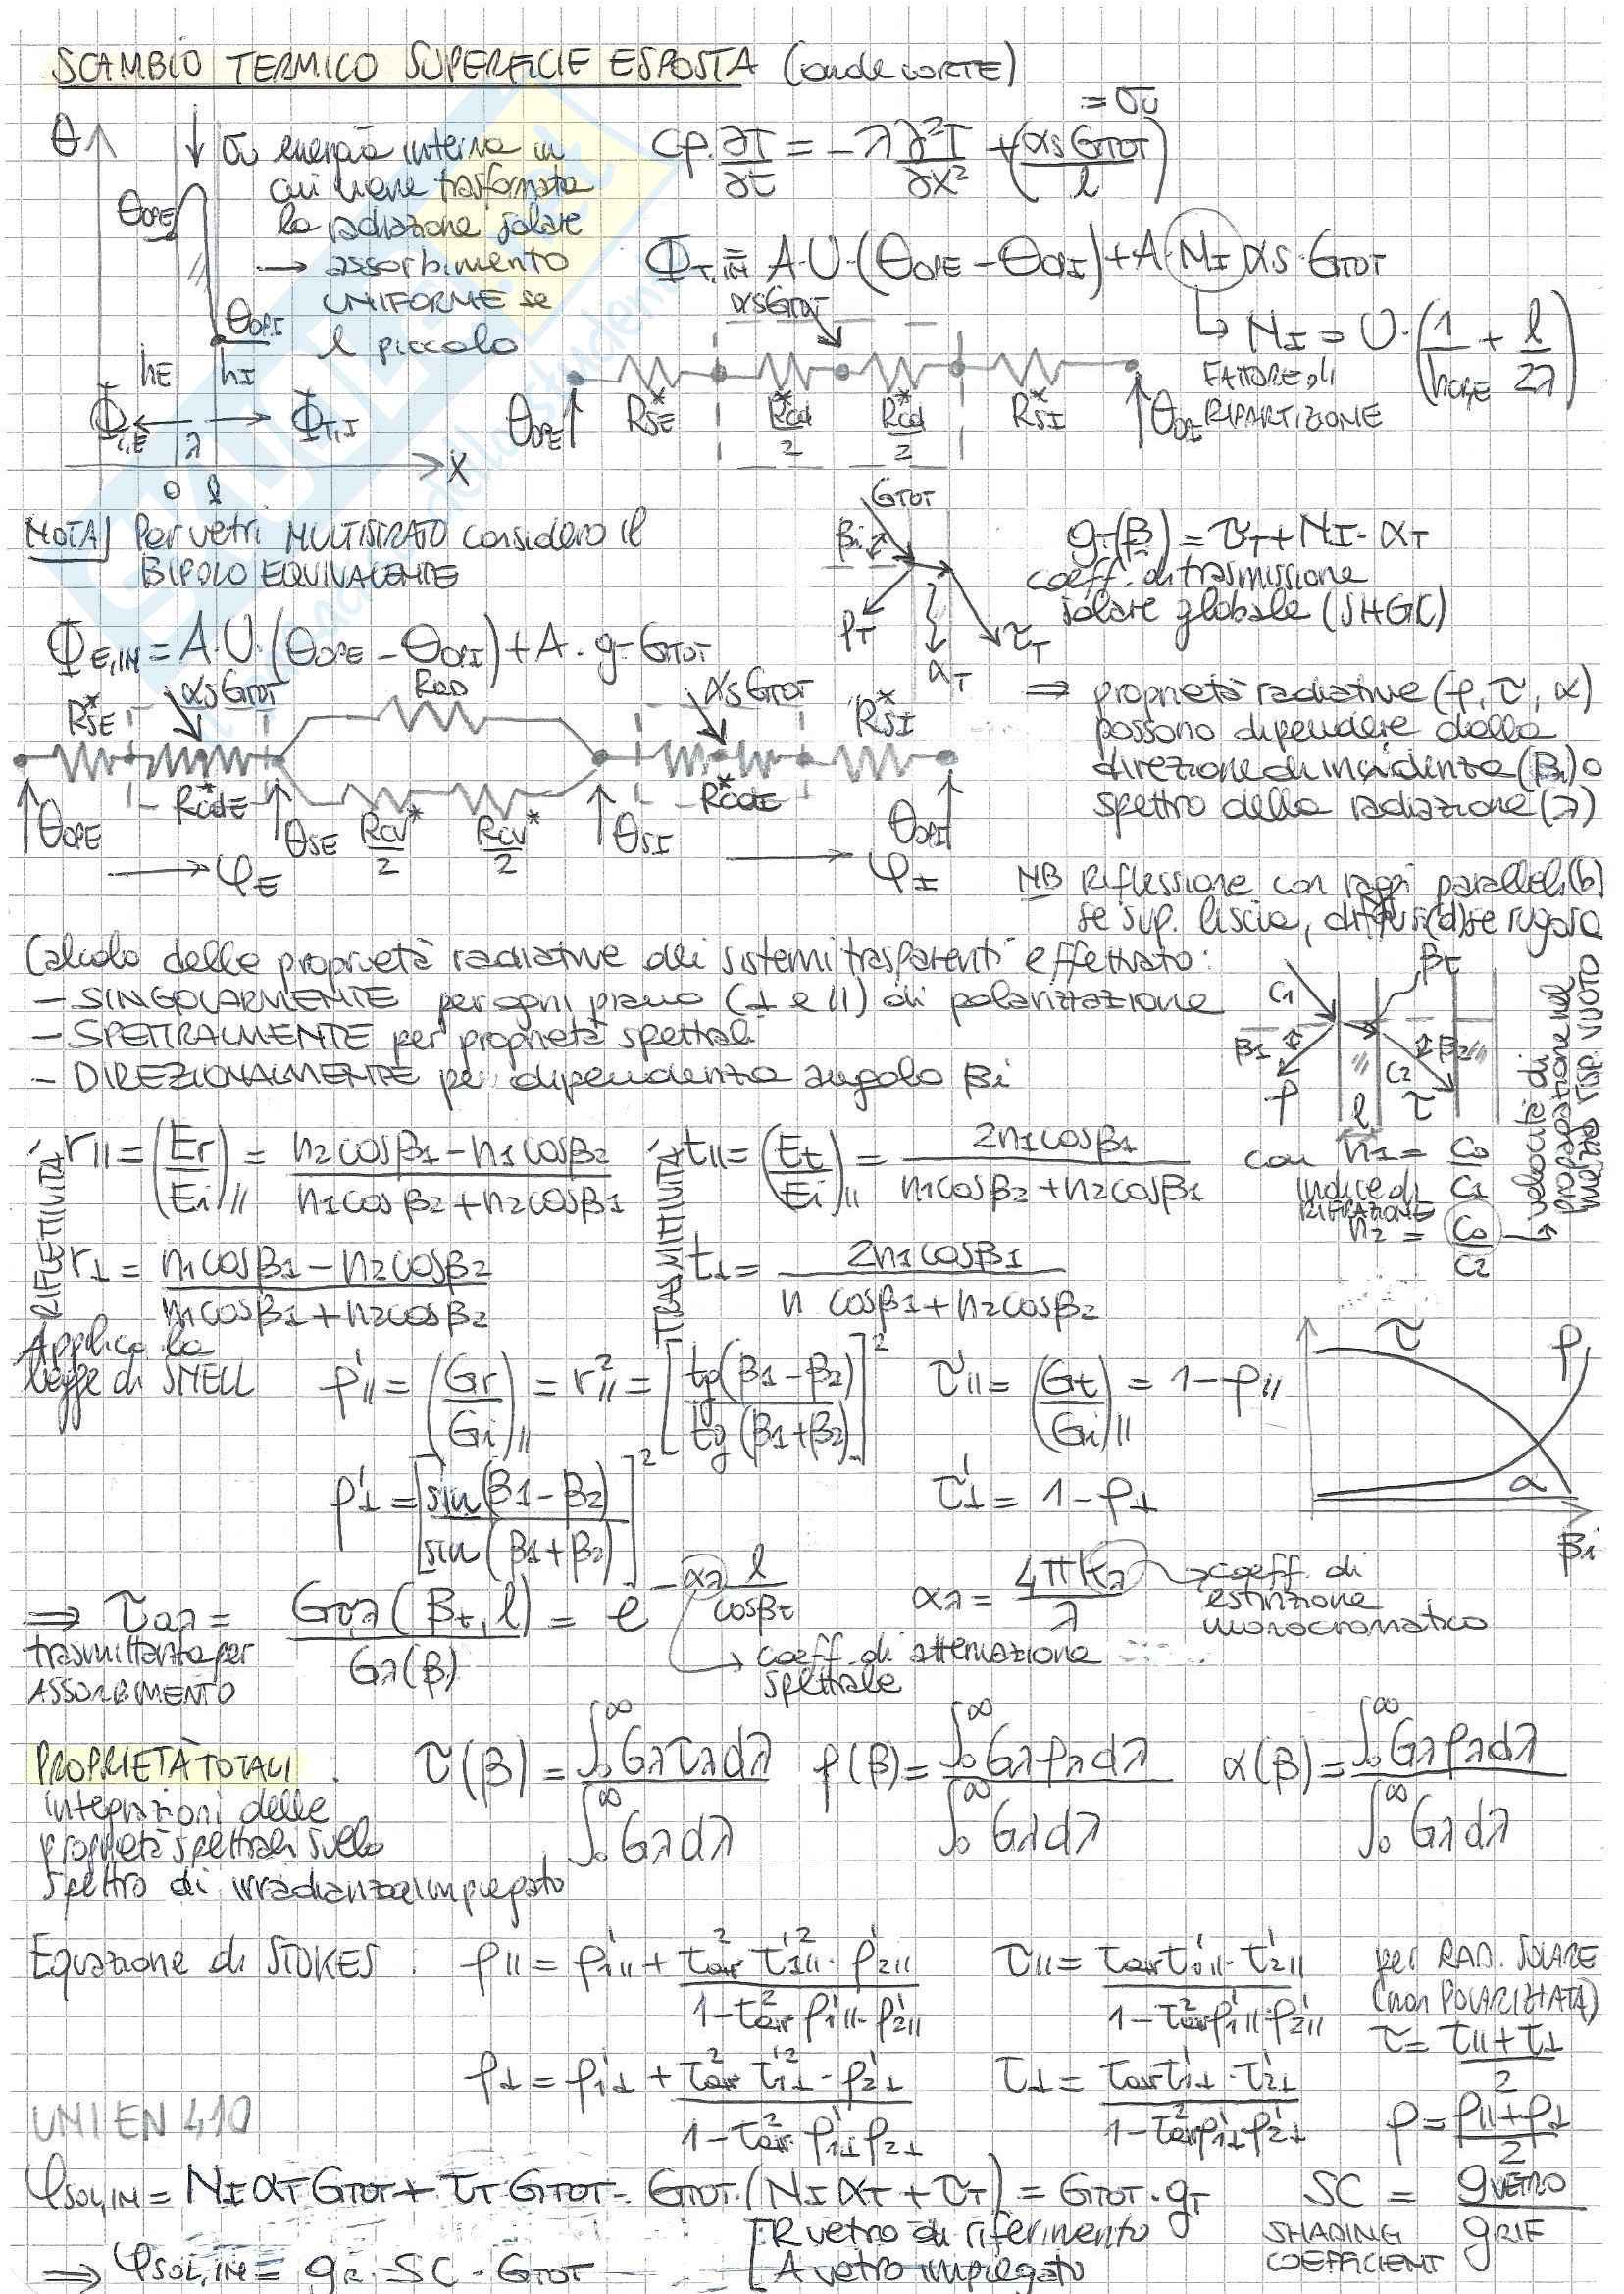 SCAMBIO TERMICO SUPERFICIE ESPOSTA (onde CORTE)
θ
σu energia interna in
cui viene trasformata
la radiazione solare
→ assorbimento
UNIFORME se
l piccolo
θOPE
θOPI
hE hI
ΦT,E ← λ → ΦT,I
0 l x
cρ·∂T/∂t = -λ ∂²T/∂x² + (αS GTOT/l) = σu
ΦT,IN = A·U·(θOPE - θOPI) + A·NI αS·GTOT
↳ NI = U·(1/hCR,E + l/2λ)
FATTORE di
RIPARTIZIONE
αS GTOT
R*SE R*cd/2 R*cd/2 R*SI
θOPE θOPI
NOTA] Per vetri MULTISTRATO considero il
BIPOLO EQUIVALENTE
ΦE,IN = A·U·(θOPE - θOPI) + A·g·GTOT
GTOT
βi
ρT
αT
τT
gT(β) = τT + NI·αT
coeff. di trasmissione
solare globale (SHGC)
⇒ proprietà radiative (ρ, τ, α)
possono dipendere dalla
direzione di incidenza (βi) o
spettro della radiazione (λ)
R*SE αS GTOT RAD αS GTOT R*SI
R*cdE R*cdE
θOPE θSE Rcv*/2 Rcv*/2 θSI θOPI
→ φE → φI
NB Riflessione con raggi paralleli (b)
se sup. liscia, diffusi (d) se rugosa
Calcolo delle proprietà radiative dei sistemi trasparenti effettuato:
- SINGOLARMENTE per ogni piano (⊥ e //) di polarizzazione
- SPETTRALMENTE per proprietà spettrali
- DIREZIONALMENTE per dipendenza angolo βi
C1 βt
β1 β2
C2
ρ l τ
RIFLETTIVITÁ
r// = (Er/Ei)// = (n2cosβ1 - n1cosβ2)/(n1cosβ2 + n2cosβ1)
TRASMITTIVITÁ
t// = (Et/Ei)// = 2n1cosβ1/(n1cosβ2 + n2cosβ1)
con n1 = C0/C1
indice di
RIFRAZIONE
n2 = C0/C2
→ velocità di
propagazione nel
mezzo risp. VUOTO
r⊥ = (n1cosβ1 - n2cosβ2)/(n1cosβ1 + n2cosβ2)
t⊥ = 2n1cosβ1/(n cosβ1 + n2cosβ2)
Applico la
legge di SNELL
ρ'// = (Gr/Gi)// = r²// = [tg(β1 - β2)/tg(β1 + β2)]²
τ'// = (Gt/Gi)// = 1 - ρ//
ρ'⊥ = [sin(β1 - β2)/sin(β1 + β2)]²
τ'⊥ = 1 - ρ⊥
τ ρ
α
βi
⇒ τaλ = Gτ,λ(βt, l)/Gλ(β) = e^(-αλ l/cosβt)
trasmittanza per
ASSORBIMENTO
↳ coeff. di attenuazione
spettrale
αλ = 4πkλ/λ
→ coeff. di
estinzione
monocromatico
PROPRIETÀ TOTALI :
integrazioni delle
proprietà spettrali sullo
spettro di irradianza impiegato
τ(β) = ∫0^∞ Gλτλdλ / ∫0^∞ Gλdλ
ρ(β) = ∫0^∞ Gλρλdλ / ∫0^∞ Gλdλ
α(β) = ∫0^∞ Gλρλdλ / ∫0^∞ Gλdλ
Equazione di STOKES :
ρ// = ρ'1// + τ²aλ τ'²1//·ρ'2// / (1 - τ²aλ ρ'1//·ρ'2//)
τ// = τaλ τ'1//·τ'2// / (1 - τ²aλ ρ'1//·ρ'2//)
per RAD. SOLARE
(non POLARIZZATA)
τ = (τ// + τ⊥)/2
ρ⊥ = ρ'1⊥ + τ²aλ τ'²1⊥·ρ'2⊥ / (1 - τ²aλ·ρ'1⊥ ρ'2⊥)
τ⊥ = τaλ τ'1⊥·τ'2⊥ / (1 - τ²aλ ρ'1⊥ ρ'2⊥)
ρ = (ρ// + ρ⊥)/2
UNI EN 410
φSOL,IN = NI αT GTOT + τT GTOT = GTOT·(NI αT + τT) = GTOT·gT
SC = gVETRO/gRIF
SHADING
COEFFICIENT
⇒ φSOL,IN = gR·SC·GTOT
[R vetro di riferimento
A vetro impiegato